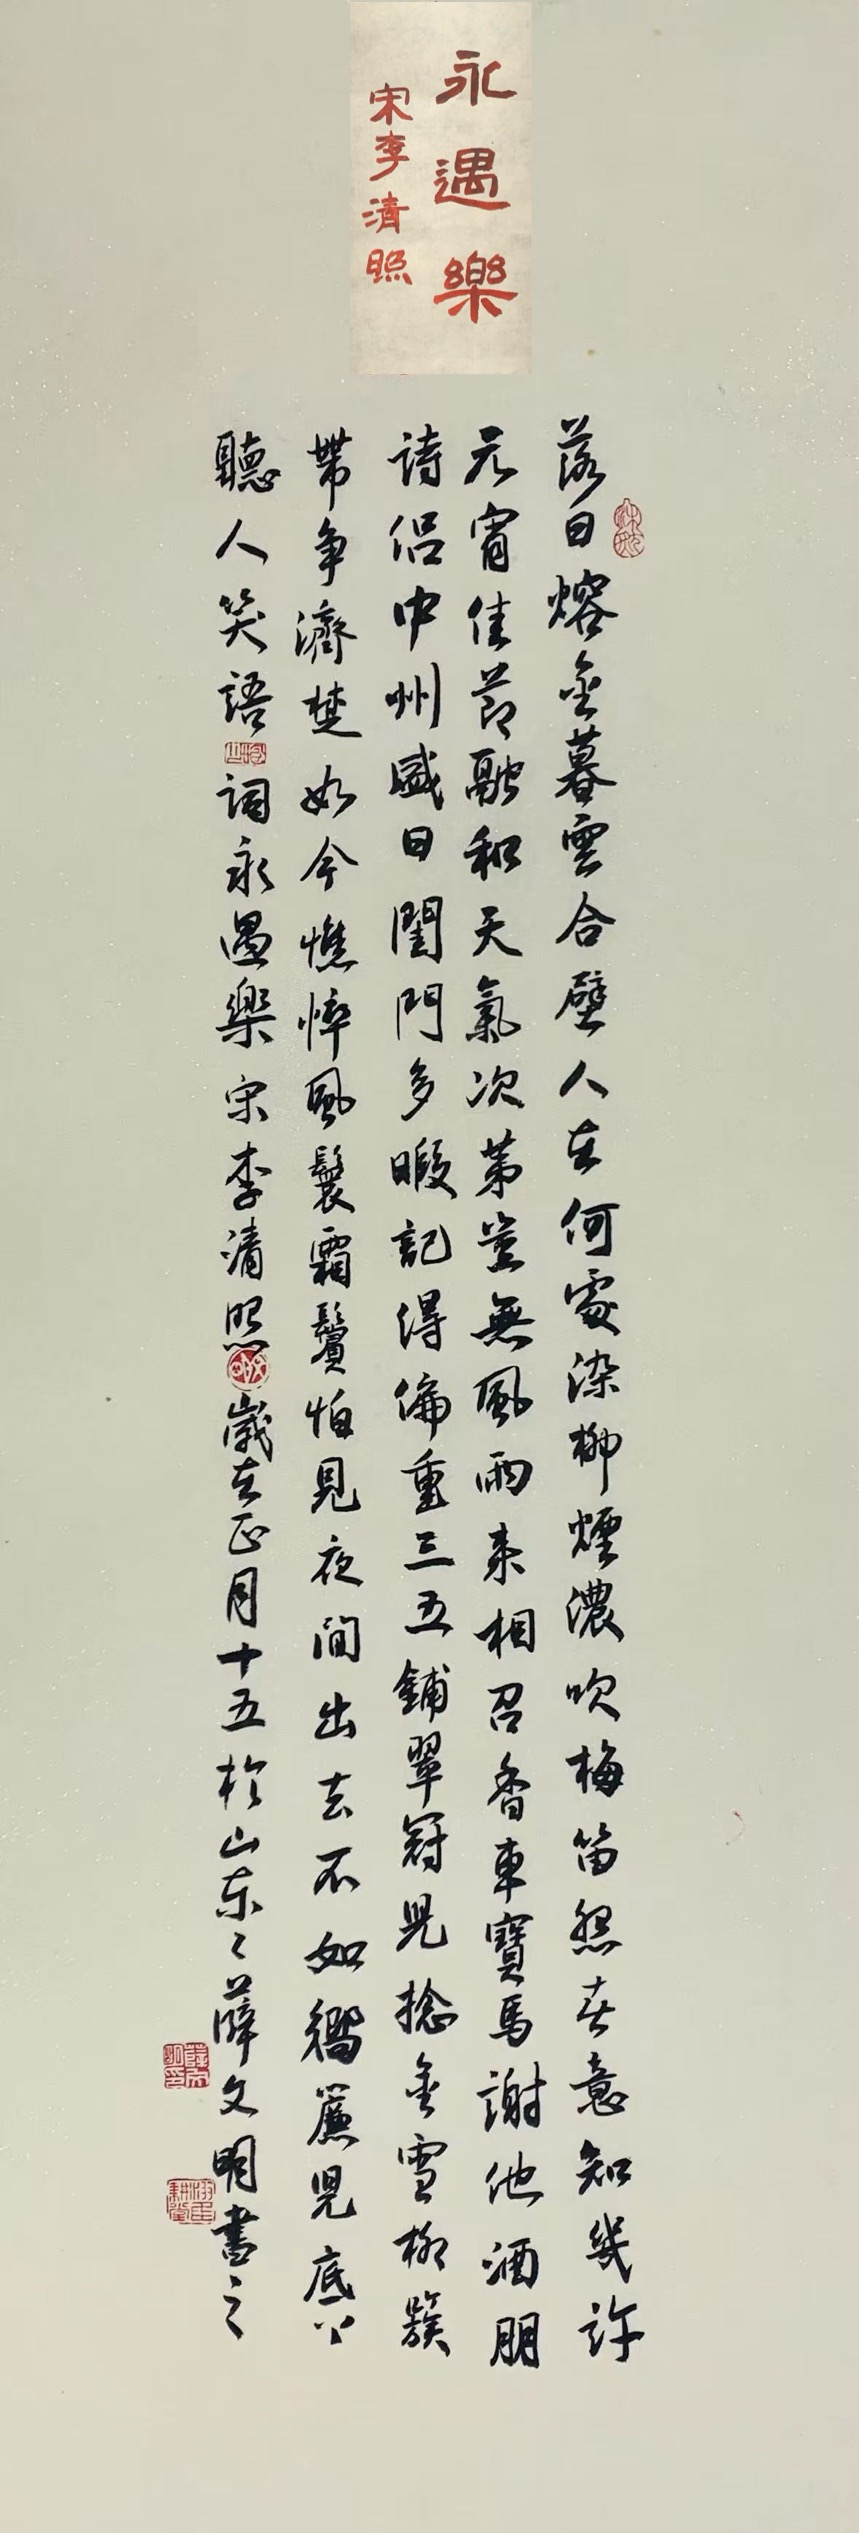 永遇樂
宋李清照
落日熔金暮雲合璧人在何處染柳煙濃吹梅笛怨春意知幾許
元宵佳節融和天氣次第豈無風雨來相召香車寶馬謝他酒朋
詩侶中州盛日閨門多暇記得偏重三五鋪翠冠兒捻金雪柳簇
帶爭濟楚如今憔悴風鬟霜鬢怕見夜間出去不如向簾兒底下
聽人笑語
詞永遇樂宋李清照
歲在正月十五於山東薛文明書之